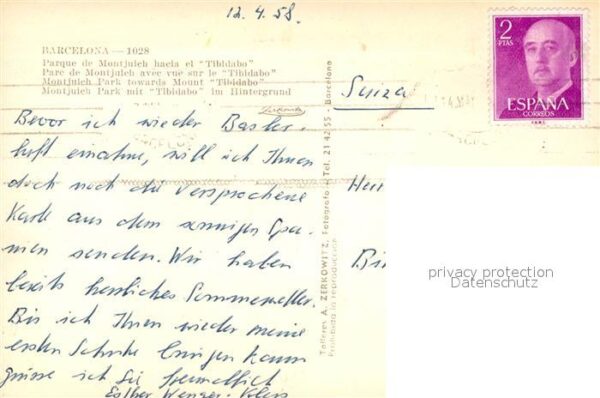 12.4.58.
BARCELONA — 1028
Parque de Montjuich hacia el "Tibidabo"
Parc de Montjuich avec vue sur le "Tibidabo"
Montjuich Park towards Mount "Tibidabo"
Montjuich Park mit "Tibidabo" im Hintergrund
Zerkowitz
Bevor ich wieder Basler-
luft einatme, will ich Ihnen
doch noch die versprochene
Karte aus dem sonnigen Spa-
nien senden. Wir haben
bereits herrliches Sommerwetter.
Bis ich Ihnen wieder meine
ersten Schuhe bringen kann
grüsse ich Sie freundlich
Esther
Talleres A. ZERKOWITZ, Fotógrafo - Tel. 21 42 55 - Barcelona
Prohibida la reproducción
Suiza
2
PTAS
ESPAÑA
CORREOS
privacy protection
Datenschutz